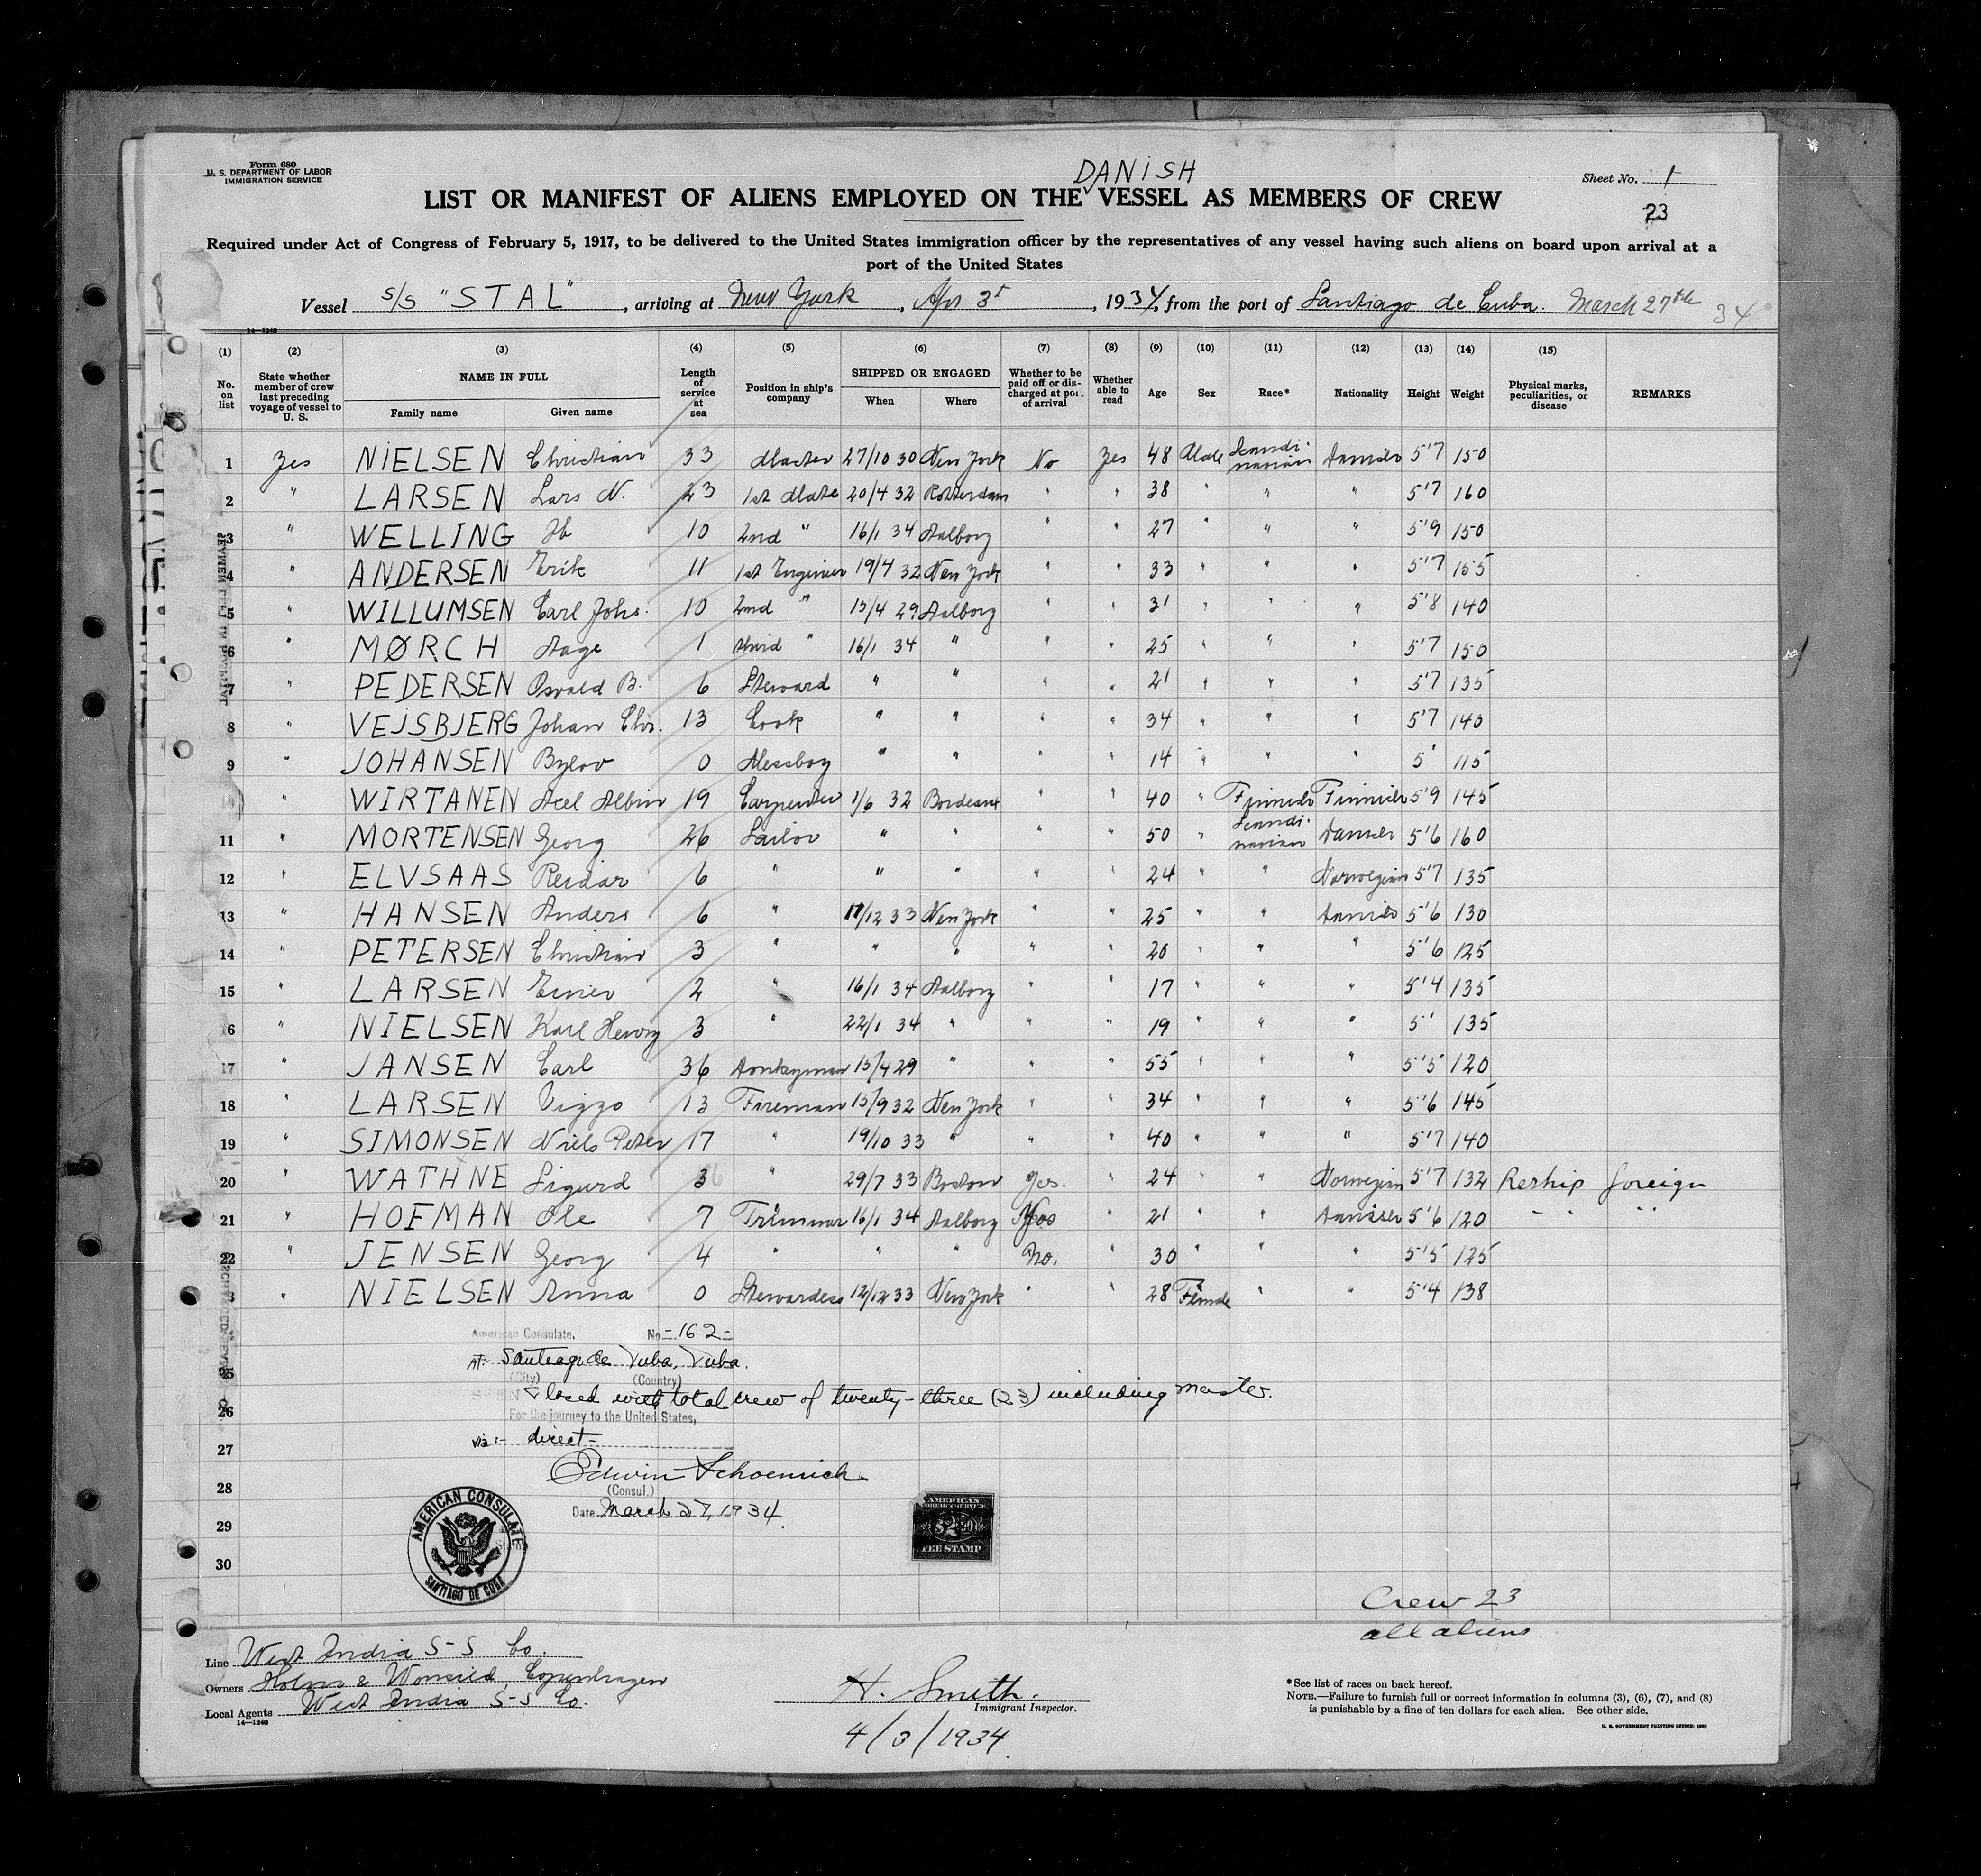 Form 680
U. S. DEPARTMENT OF LABOR
IMMIGRATION SERVICE
DANISH
Sheet No. 1
LIST OR MANIFEST OF ALIENS EMPLOYED ON THE VESSEL AS MEMBERS OF CREW
23
Required under Act of Congress of February 5, 1917, to be delivered to the United States immigration officer by the representatives of any vessel having such aliens on board upon arrival at a
port of the United States
Vessel S/S "STAL", arriving at New York, Apr 3r, 1934, from the port of Santiago de Cuba. March 27th 34
14—1240
(1) (2) (3) (4) (5) (6) (7) (8) (9) (10) (11) (12) (13) (14) (15)
No. on list
State whether member of crew last preceding voyage of vessel to U. S.
NAME IN FULL
Family name Given name
Length of service at sea
Position in ship's company
SHIPPED OR ENGAGED
When Where
Whether to be paid off or discharged at port of arrival
Whether able to read
Age
Sex
Race*
Nationality
Height
Weight
Physical marks, peculiarities, or disease
REMARKS
1 Yes NIELSEN Christian 33 Master 27/10 30 New York No Yes 48 Male Scandi-navian Danish 5'7 150
2 " LARSEN Lars N. 23 1st Mate 20/4 32 Rotterdam " " 38 " " " 5'7 160
3 " WELLING Ib 10 2nd " 16/1 34 Aalborg " " 27 " " " 5'9 150
4 " ANDERSEN Erik 11 1st Engineer 19/4 32 New York " " 33 " " " 5'7 155
5 " WILLUMSEN Carl Johs. 10 2nd " 15/4 29 Aalborg " " 31 " " " 5'8 140
6 " MØRCH Aage 1 third " 16/1 34 " " " 25 " " " 5'7 150
7 " PEDERSEN Osvald B. 6 Steward " " " " 21 " " " 5'7 135
8 " VEJSBJERG Johan Chr. 13 Cook " " " " 34 " " " 5'7 140
9 " JOHANSEN 0 Messboy " " " 14 " " " 5' 115
" WIRTANEN Axel Albin 19 Carpenter 1/6 32 Bordeaux " " 40 " Finnish Finnish 5'9 145
11 " MORTENSEN Georg 26 Sailor " " " " 50 " Scandi-navian Danish 5'6 160
12 " ELVSAAS Reidar 6 " " " " " 24 " " Norwegian 5'7 135
13 " HANSEN Anders 6 " 17/12 33 New York " " 25 " " Danish 5'6 130
14 " PETERSEN Christian 3 " " " " " 20 " " " 5'6 125
15 " LARSEN 2 " 16/1 34 Aalborg " " 17 " " " 5'4 135
16 " NIELSEN Karl Henry 3 " 22/1 34 " " " 19 " " " 5' 135
17 " JANSEN Carl 36 Donkeyman 15/4 29 " " " 55 " " " 5'5 120
18 " LARSEN Viggo 13 Fireman 15/9 32 New York " " 34 " " " 5'6 145
19 " SIMONSEN Niels Peter 17 " 19/10 33 " " " 40 " " " 5'7 140
20 " WATHNE Sigurd 36 " 29/7 33 Boston Yes. " 24 " " Norwegian 5'7 132 Reship foreign
21 " HOFMAN Ole 7 Trimmer 16/1 34 Aalborg Yes " 21 " " Danish 5'6 120 " " "
22 " JENSEN Georg 4 " " " No. " 30 " " " 5'5 125
3 " NIELSEN Anna 0 Stewardess 12/12 33 New York " " 28 Female " " 5'4 138
American Consulate. No. -162-
AT:- Santiago de Cuba, Cuba.
25
(City) (Country)
SEEN
Closed with total crew of twenty-three (23) including Master.
26
For the journey to the United States,
via:- direct-
27
Edwin Schoenrich
28
(Consul.)
Date March 27, 1934.
29
30
AMERICAN CONSULATE
SANTIAGO DE CUBA
AMERICAN
FOREIGN SERVICE
$2.00
FEE STAMP
Crew 23
all aliens
Line West India S-S Co.
Owners Holm & Wonsild, Copenhagen
Local Agents West India S-S Co.
14—1240
H. Smith.
Immigrant Inspector.
4/3/1934
*See list of races on back hereof.
NOTE.—Failure to furnish full or correct information in columns (3), (6), (7), and (8)
is punishable by a fine of ten dollars for each alien. See other side.
U. S. GOVERNMENT PRINTING OFFICE